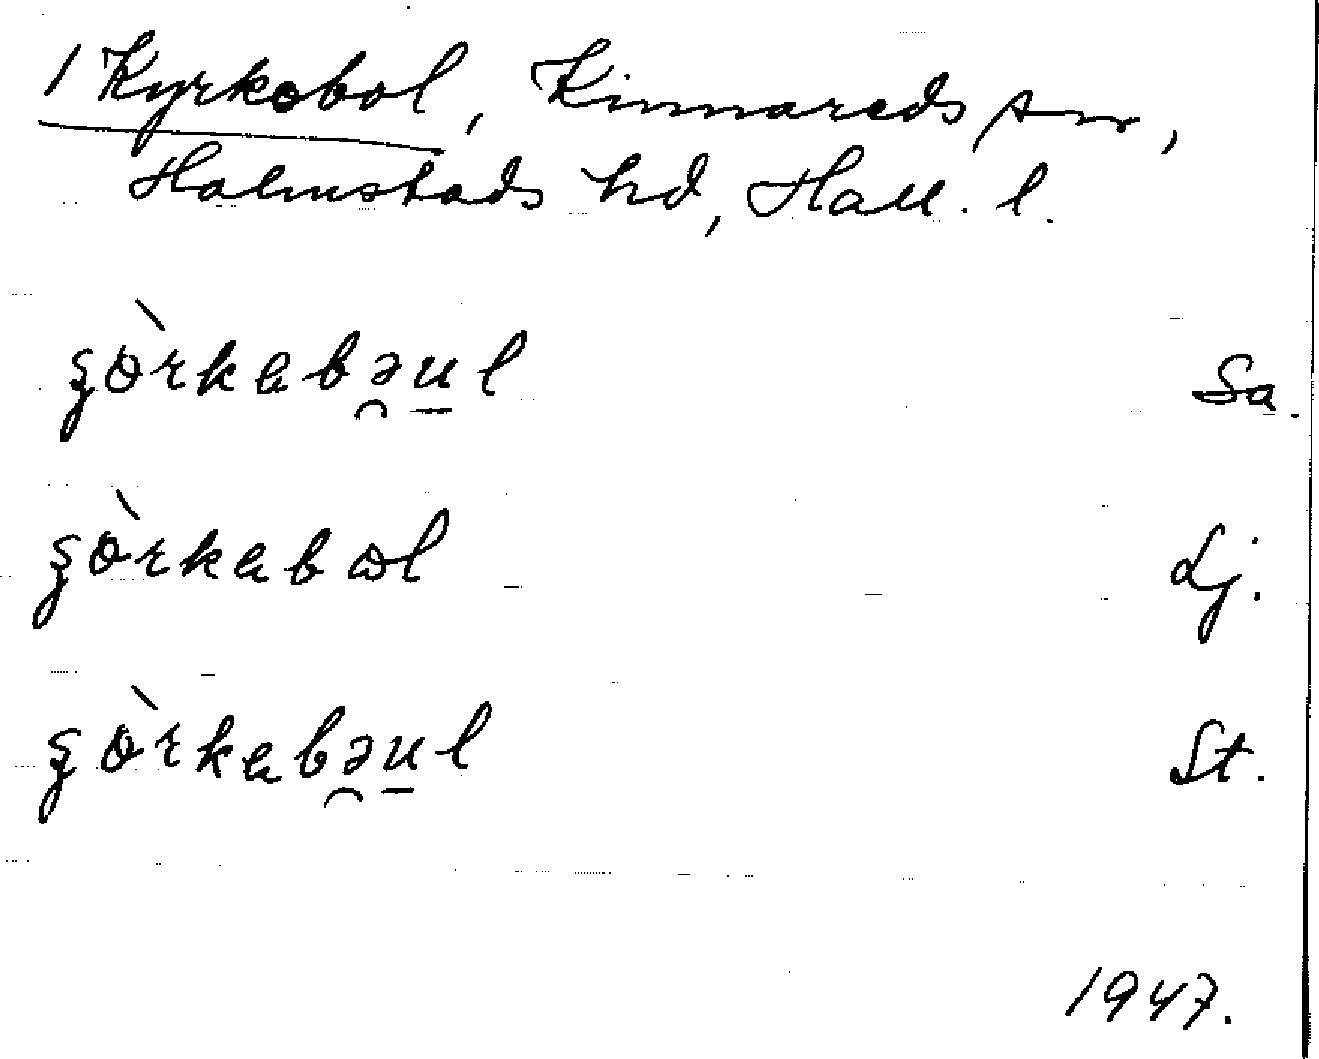 1 Kyrkobol, Kinnareds sn,
Holmstads hd, Hall. l.
ʂòrkabəul Sa.
ʂòrkabɷl Lj.
ʂòrkabəul St.
1947.